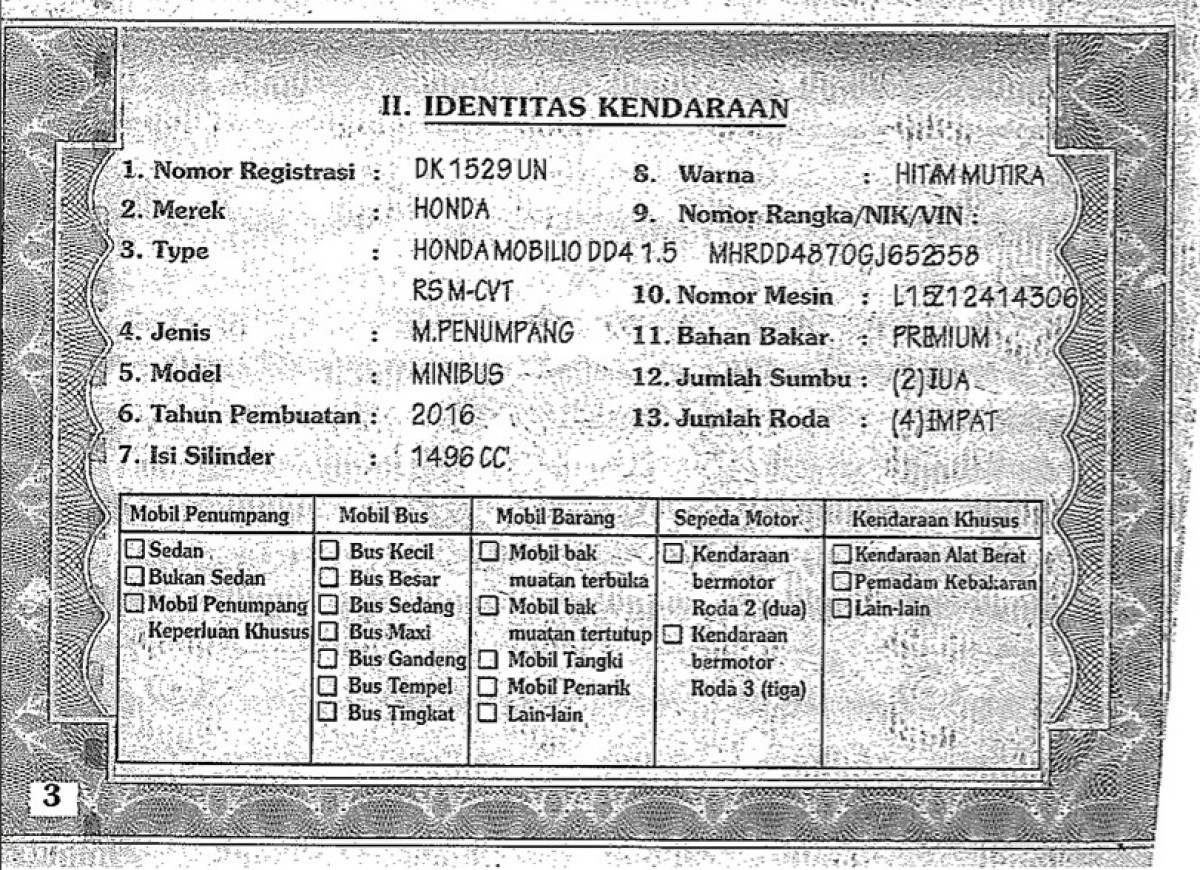 II. IDENTITAS KENDARAAN
1. Nomor Registrasi : DK 1529 UN
2. Merek : HONDA
3. Type : HONDA MOBILIO DD4 1.5
RS M-CVT
4. Jenis : M.PENUMPANG
5. Model : MINIBUS
6. Tahun Pembuatan : 2016
7. Isi Silinder : 1496 CC
8. Warna : HITAM MUTIRA
9. Nomor Rangka/NIK/VIN :
MHRDD4870GJ652558
10. Nomor Mesin : L15Z12414306
11. Bahan Bakar : PREMIUM
12. Jumlah Sumbu : (2)
13. Jumlah Roda : (4)
Mobil Penumpang
Sedan
Bukan Sedan
Mobil Penumpang
Keperluan Khusus
Mobil Bus
Bus Kecil
Bus Besar
Bus Sedang
Bus Maxi
Bus Gandeng
Bus Tempel
Bus Tingkat
Mobil Barang
Mobil bak
muatan terbuka
Mobil bak
muatan tertutup
Mobil Tangki
Mobil Penarik
Lain-lain
Sepeda Motor
Kendaraan
bermotor
Roda 2 (dua)
Kendaraan
bermotor
Roda 3 (tiga)
Kendaraan Khusus
Kendaraan Alat Berat
Pemadam Kebakaran
Lain-lain
3